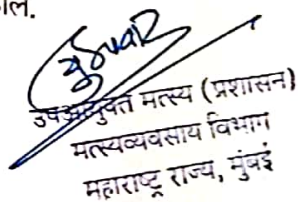 ल.
उपआयुक्त मत्स्य (प्रशासन)
मत्स्यव्यवसाय विभाग
महाराष्ट्र राज्य, मुंबई